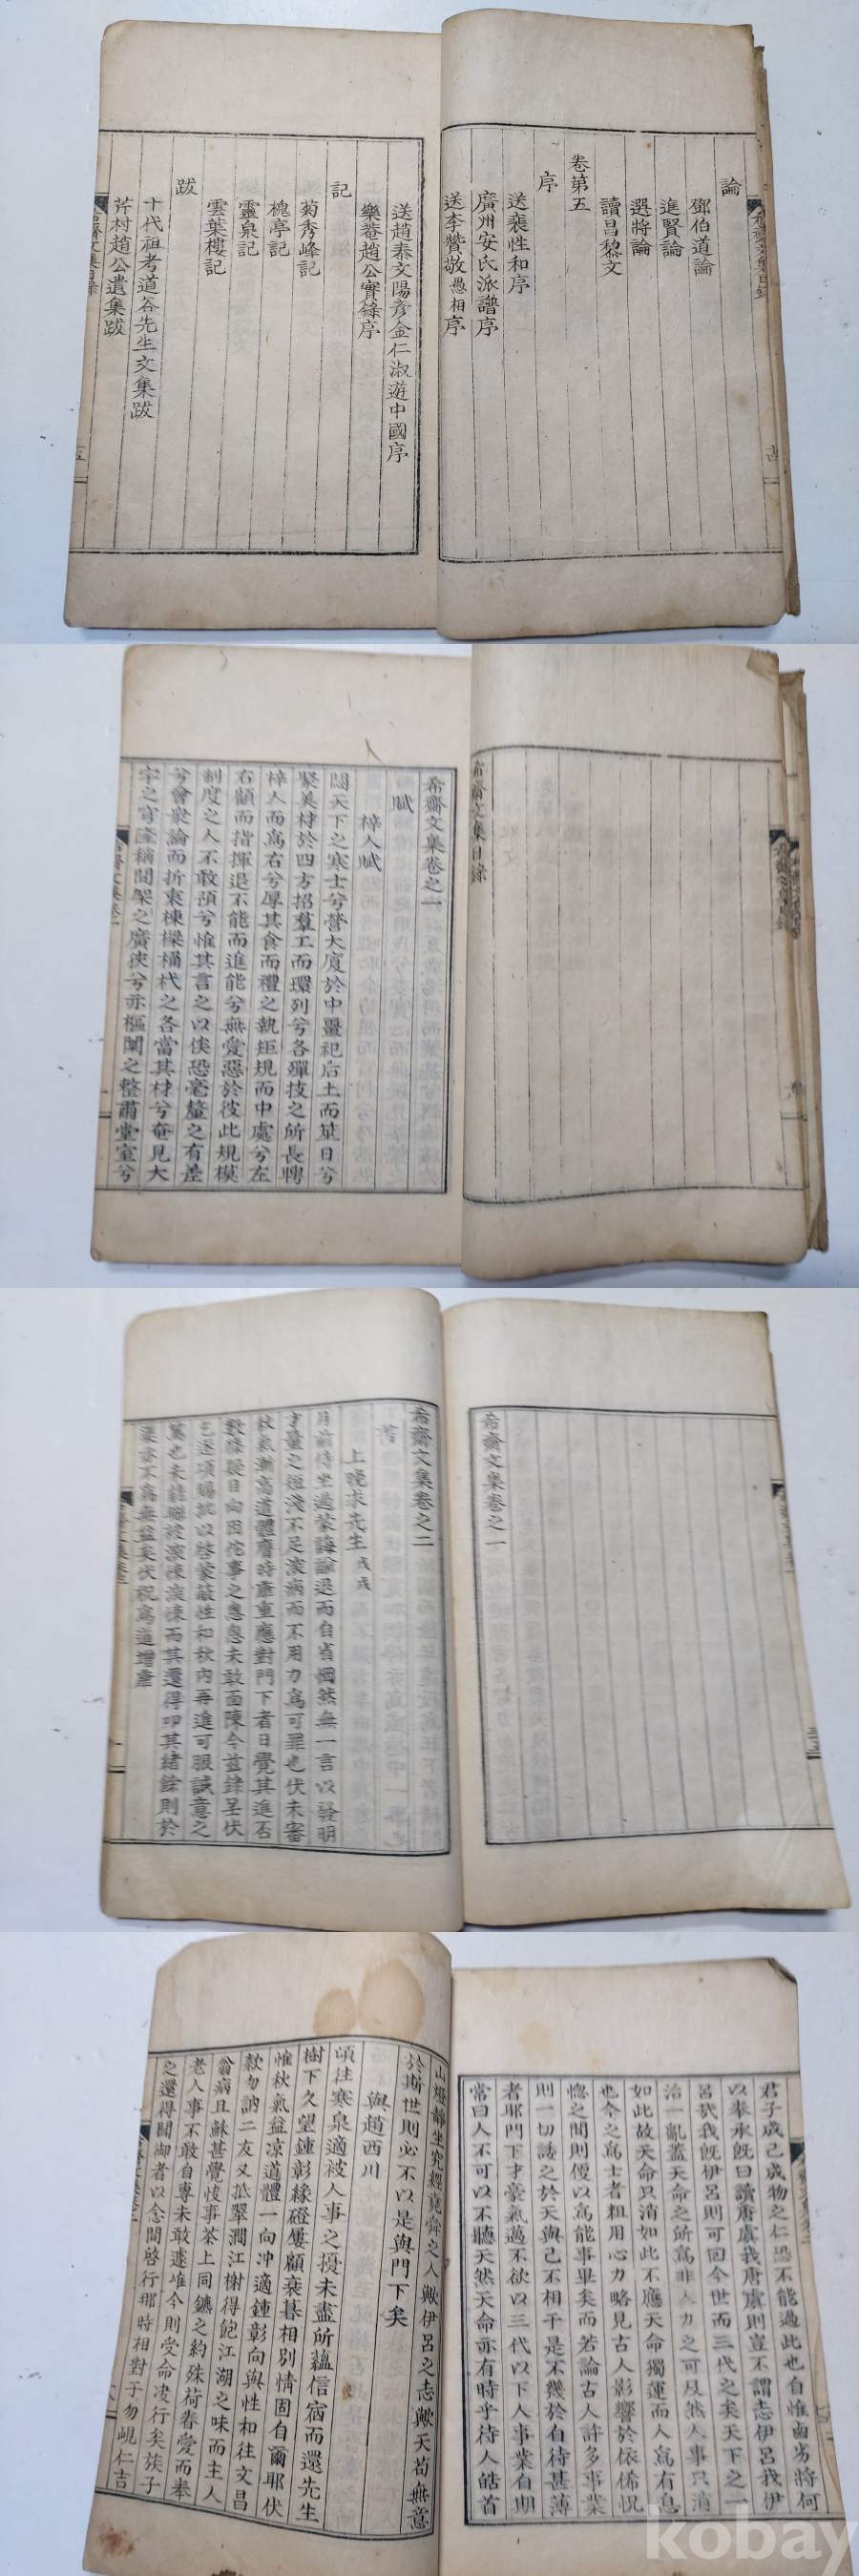 論
鄧伯道論
進賢論
選將論
讀昌黎文
卷第五
序
送裵性和序
廣州安氏派譜序
送李贊敬愚相序
送趙泰文陽彦金仁淑遊中國序
樂菴趙公實錄序
記
菊秀峰記
槐亭記
靈泉記
雲葉樓記
跋
十代祖考道谷先生文集跋
芹村趙公遺集跋
希齋文集目錄
希齋文集卷之一
賦
梓人賦
閱天下之寒士兮營大廈於中畺祀后土而筮日兮
聚美材於四方招羣工而環列兮各殫技之所長聘
梓人而爲右兮厚其食而禮之執矩規而中處兮左
右顧而指揮退不能而進能兮無愛惡於彼此規模
制度之人不敢預兮惟其言之以俟恐毫釐之有差
兮會衆論而折衷棟樑桷杙之各當其材兮奄見大
宇之穹隆稱間架之廣狹兮亦樞闑之整肅堂室兮
希齋文集卷之一
希齋文集卷之二
書
上晩求先生戊戌
月前侍坐過蒙誨諭退而自省惘然無一言以發明
才量之短淺不足深病而不用力爲可罪也伏未審
秋氣漸高道體膺時康重應對門下者日覺其進否
數條疑目向因佗事之悤悤未敢面陳今玆錄呈伏
乞逐項賜批以啓蒙蔽性和秋內再進可服誠意之
篤也未能聯被深悚深悚而其還得叩其緖餘則於
渠亦不爲無益矣伏祝爲道增康
君子成己成物之仁恐不能過此也自惟鹵劣將何
以奉承旣曰讀唐虞我唐虞則豈不謂志伊呂我伊
呂哉我旣伊呂則可回今世而三代之矣天下之一
治一亂蓋天命之所爲非人力之可及然人事只消
如此故天命只消如此不應天命獨運而人爲有息
也今之高士者粗用心力略見古人影響於依俙怳
惚之間則便以爲能事畢矣而若論古人許多事業
則一切諉之於天與己不相干是不幾於自待甚薄
者耶門下才豪氣邁不欲以三代以下人事業自期
常曰人不可以不聽天然天命亦有時乎待人皓首
山燈靜坐究經竟舜之人歟伊呂之志歟天苟無意
於斯世則必不以是與門下矣
與趙西川
頃往寒泉適被人事之擾未盡所蘊信宿而還先生
樹下久望鍾彰緣磴屢顧衰暮相別情固自爾耶伏
惟秋氣益凉道體一向冲適鍾彰向與性和往文昌
欸勿訥二友又抵翠澗江榭得飽江湖之味而主人
翁病且蘇甚覺快事茶上同鑣之約殊荷眷愛而奉
老人事不敢自專未敢遽進今則受命凌行矣族子
之還得聞御者以念間啓行那時相對于勿峴仁吉